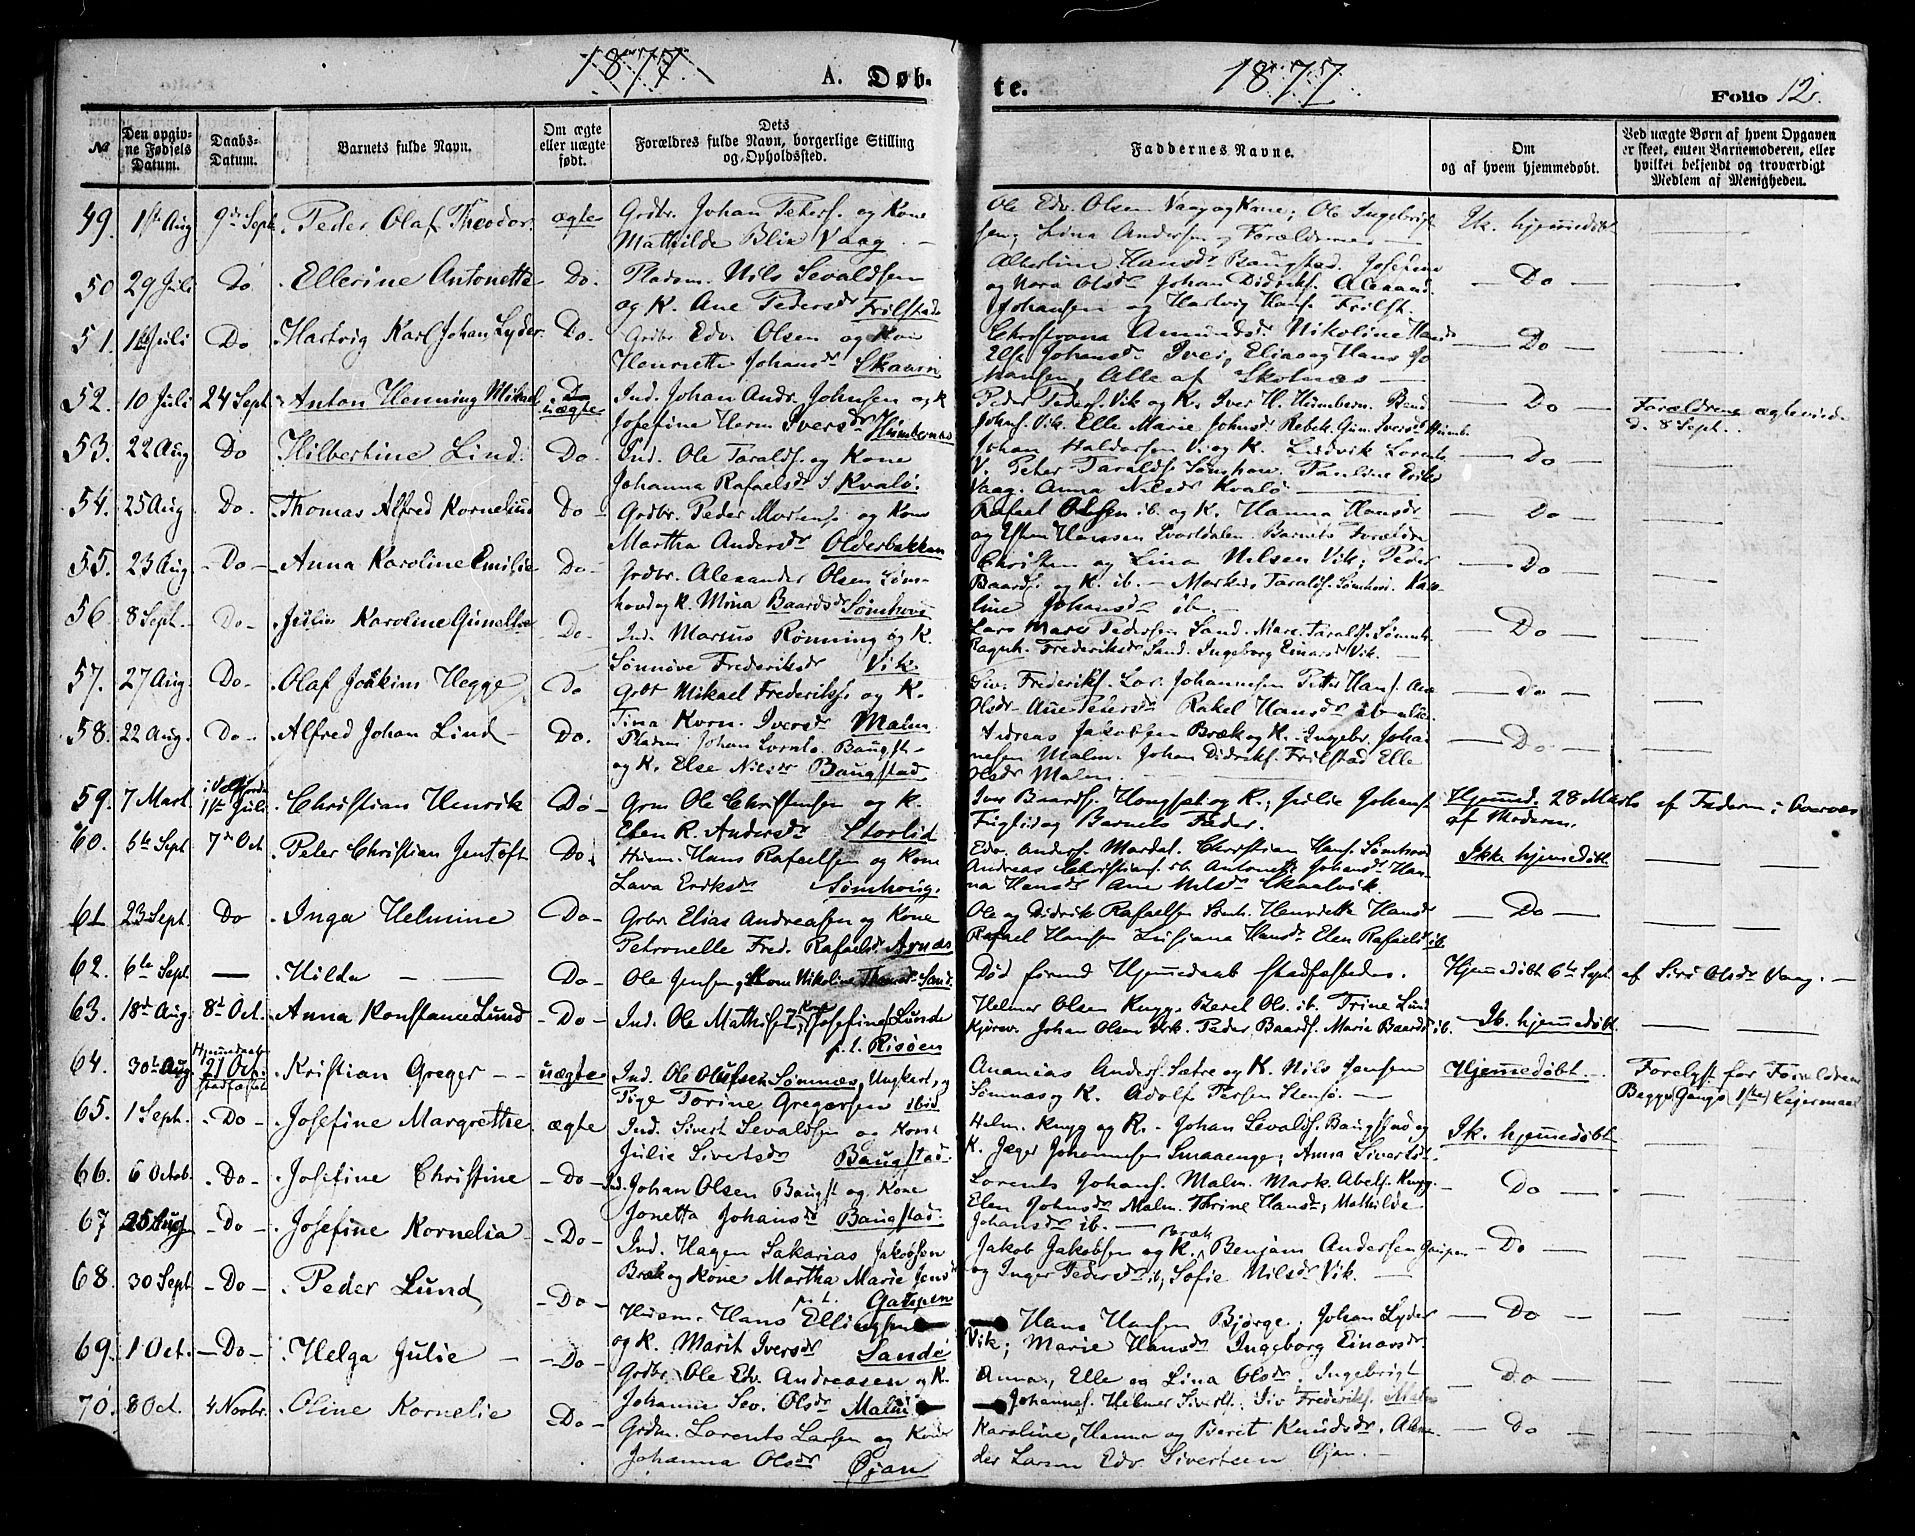 1877. A. Døb-
te. 1877 Folio 12.
No
Den opgiv-
ne Fødsels
Datum.
Daabs-
Datum.
Barnets fulde Navn.
Om ægte
eller uægte
født.
Dets
Forældres fulde Navn, borgerlige Stilling
og Opholdssted.
Faddernes Navne.
Om
og af hvem hjemmedøbt.
Ved uægte Børn af hvem Opgaven
er skeet, enten Barnemoderen, eller
hvilket bekjendt og troværdigt
Medlem af Menigheden.
49. 1ste Aug 9de Sept. Peder Olaf Theodor. ægte Grdbr. Johan Peters. og Kone
Mathilde Blix Vaag. —
Ole Edv. Olsen Vaag og Kone; Ole Ingebrigt-
sen, Lina Andersen og Forældrene — Ik. hjemmedøbt
50 29 Juli Do. Ellerine Antonette Do. Pladsm. Nils Sevaldsen
og K. Ane Pedersdr Frilstad
Albertine Hansdr Baugstad. Josefine
og Nora Olsdr Johan Didriks. Alexand.
Johansen og Hartvig Hans. Frilst. — Do —
51. 1ste Juli Do Hartvig Karl Johan Lyder. Do. Grdbr Edv. Olsen og Kone
Henriette Johansdr Skaarn
Elise Johansdr Iver, Elias og Hans Jo
hansen, Alle af Skolnæs — — Do —
52. 10 Juli 24 Sept Anton Henning Mikael uægte Ind. Johan Andr. Johnsen og K
Josefine Herm Iversdr Humbernes
Peder Peders. Vik og K. Iver H. Humbern.
Johns. Vik. Elle Marie Johnsdr — Do — Forældrene ægteviede
d. 8 Sept.
53. 22 Aug Do Hilbertine Lind. Do. Ind. Ole Taralds. og Kone
Johanna Rafaelsdr Kvalø.
Johan Haldorsen V. og K. Ludvik Lorents.
V. Peter Taralds.
Vaag. Anna Nilsdr Kvalø — — Do —
54. 25 Aug Do. Thomas Alfred Kornelius Do — Grdbr. Peder Mortens. og Kone
Martha Andersdr Olderbakken
Rafael Olsen ib. og K. Hanna Hansdr
og Esten Hanssen Svartdalen. Barnets Forældre — Do —
55. 23 Aug. — Do — Anna Karoline Emilie Do — Grdbr. Alexander Olsen Søm-
hov og K. Mina Baardsdr Sømhov
Christen og Lina Nilsen Vik; Peder
Baards. og K. ib. — Markus Taralds. Sømhov. Karo-
line Johansdr ib. — — Do —
56. 8 Sept. — Do — Julie Karoline Gunelle Do — Ind. Marius Rønning og K.
Sønnøve Frederiksdr Vik.
Lars Mare Pedersen Sand. Mare Taralds. Sømh.
Ragnh. Frederiksdr Sand. Ingeborg Einarsdr Vik. — — Do —
57. 27 Aug. Do — Olaf Joakim Hegge Do Grbr Mikael Frederiks. og K.
Tina Korn. Iversdr Malm.
Siv. Frederiks. Lor. Johannsen Petter Hans. Ane
Olsdr Ane Petersdr Rakel Hansdr ib — Do —
58. 22 Aug. Do — Alfred Johan Lind — Do. Pladsm Johan Lornts. Baugst —
og K. Else Nilsdr Baugstad
Andreas Jakobsen Bræk og K. Ingebr. Johan
nesen Malm. Johan Didriks. Frilstad Elle
Olsdr Malm — Do —
59. 7 Mart 1ste Juli Christian Henrik Do — Grm Ole Christensen og K.
Elen R. Andersdr Storlid
Iver Baards. og K.; Julie Johans.
Fuglid og Barnets Fader. Hjemmed. 28 Marts af Faderen
af Moderen.
60. 5te Sept 7de Oct. Peter Christian Jentoft Do. Husm. Hans Rafaelsen og Kone
Lava Eriksdr Sømhoug.
Edv. Anders. Mardal. Christian Hans. Sømhoug
Andreas Christians. ib. Antonette Johansdr Han-
na Hansdr Ane Nilsdr Skaalvik. Ikke hjemmedøbt.
61 23 Sept. Do Inga Helmine Do — Grbr. Elias Andreassen og Kone
Petronelle Fred. Rafaelsdr Arnæs
Ole og Didrik Rafaelsen Sømh. Henriette Hansdr
Rafael Hansen Lusiana Hansdr Elen Rafaelsdr ib. — Do —
62. 6te Sept. — Hilda — — Do — Ole Jensen, Kone Nikoline Thomasdr Sand.
Død forend Hjemmedaab stadfæstedes. Hjemmedøbt 6te Sept. af Siri Olsdr Vaag. —
63. 18de Aug. 8de Oct. Anna Konstance Lund — Do — Ind. Ole Mathisen, Kone Josefine Lunde
p.t. Risøen
Helmer Olsen Knyg. Beret Ols. ib. Trine Lund
Kjørsv. Johan Olsen Peder Baards. Marie Baardsdr ib. — Ik. hjemmedøbt.
64. 30te Aug. Hjemmedaab
21 Oct.
stadfæstet Kristian Greger — — uægte Ind. Ole Olufsen Sømnæs, Ungkarl, og
Pige Torine Gregersen ibid
Ananias Anders. Sætre og K. Nils Jensen
Sømnæs og K. Adolf Persen Stensø. — Hjemmedøbt. Forelyst for Forældrene
Begges Gangs (1ste) Leiermaal
65. 1 Sept. — Do — Josefine Margrethe ægte Ind. Sivert Sevaldsen og Kone
Julie Sivertsdr Baugstad
Helm. Knyg og K. — Johan Sevalds. Baugstad og
K. Jæger Johannesen Smaaenge; Anna Sivertsdr Ik. hjemmedøbt.
66. 6 Octob. — Do — Josefine Christine — Do — Ind. Johan Olsen Baugst og Kone
Jonetta Johansdr Baugstad.
Lorents Johans. Malm. Mark. Abels. Knyg.
Elen Johnsdr Malm. Thrine Hansdr, Mathilde
Johansdr ib. — — Do —
67 25 Aug — Do — Josefine Kornelia — Do — Ind. Hagen Sakarias Jakobsen
Bræk og Kone Martha Marie Jensdr
p.t. Gaupen
Jakob Jakobsen og K. Bræk Benjam Andersen Gaupen
og Inger Pedersdr ib, Sofie Nilsdr Vik. — — Do —
68. 30 Sept — Do — Peder Lund — Do — Husm. Hans Ellingsen
og K. Marit Iversdr Sande
Hans Hansen Bjørge. Johan Lyder
Vik; Marie Hansdr Ingeborg Einarsdr — Do —
69. 1 Oct. — Do — Helga Julie — — Do — Grdbr. Ole Edv. Andreasen og K.
Johanne Sev. Olsdr Malm
Anna, Elle og Lina Olsdr. Ingebrigt
Johannes. Helmer Siverts. Siv Frederiks. Malm — Do —
70. 8 Oct. 4 Novbr. Oline Kornelie — Do — Grdm. Lorents Larsen og Kone
Johanna Olsdr Øjan
Karoline, Hanna og Berit Knudsdr. Alexan
der Larsen Edv. Sivertsen Øjan. — Do —